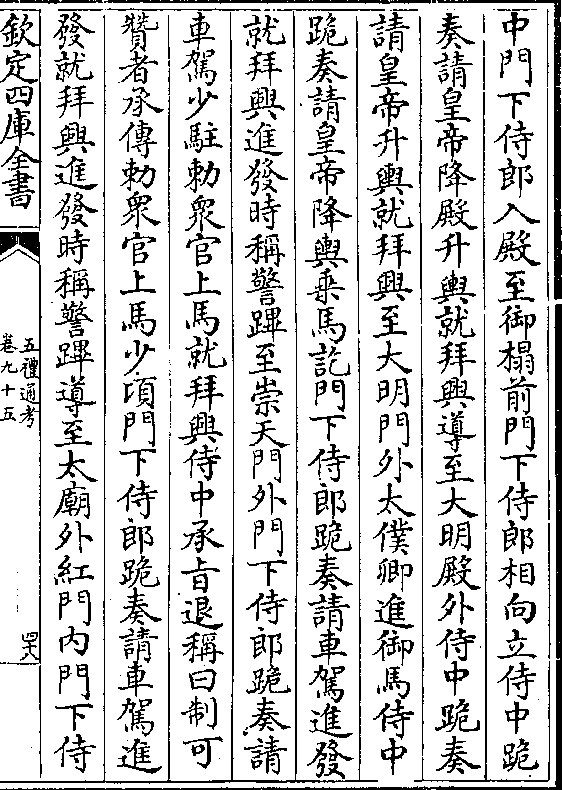 中門下侍郎入殿至御榻前門下侍郎相向立侍中跪
奏請皇帝降殿升輿就拜興導至大明殿外侍中跪奏
請皇帝升輿就拜興至大明門外太僕卿進御馬侍中
跪奏請皇帝降輿乗馬訖門下侍郎跪奏請車駕進發
就拜興進發時稱警蹕至崇天門外門下侍郎跪奏請
車駕少駐勅衆官上馬就拜興侍中承㫖退稱曰制可
贊者承傳勅衆官上馬少頃門下侍郎跪奏請車駕進
發就拜興進發時稱警蹕導至太廟外紅門内門下侍
欽定四庫全書
五禮通考
卷九十五
四六